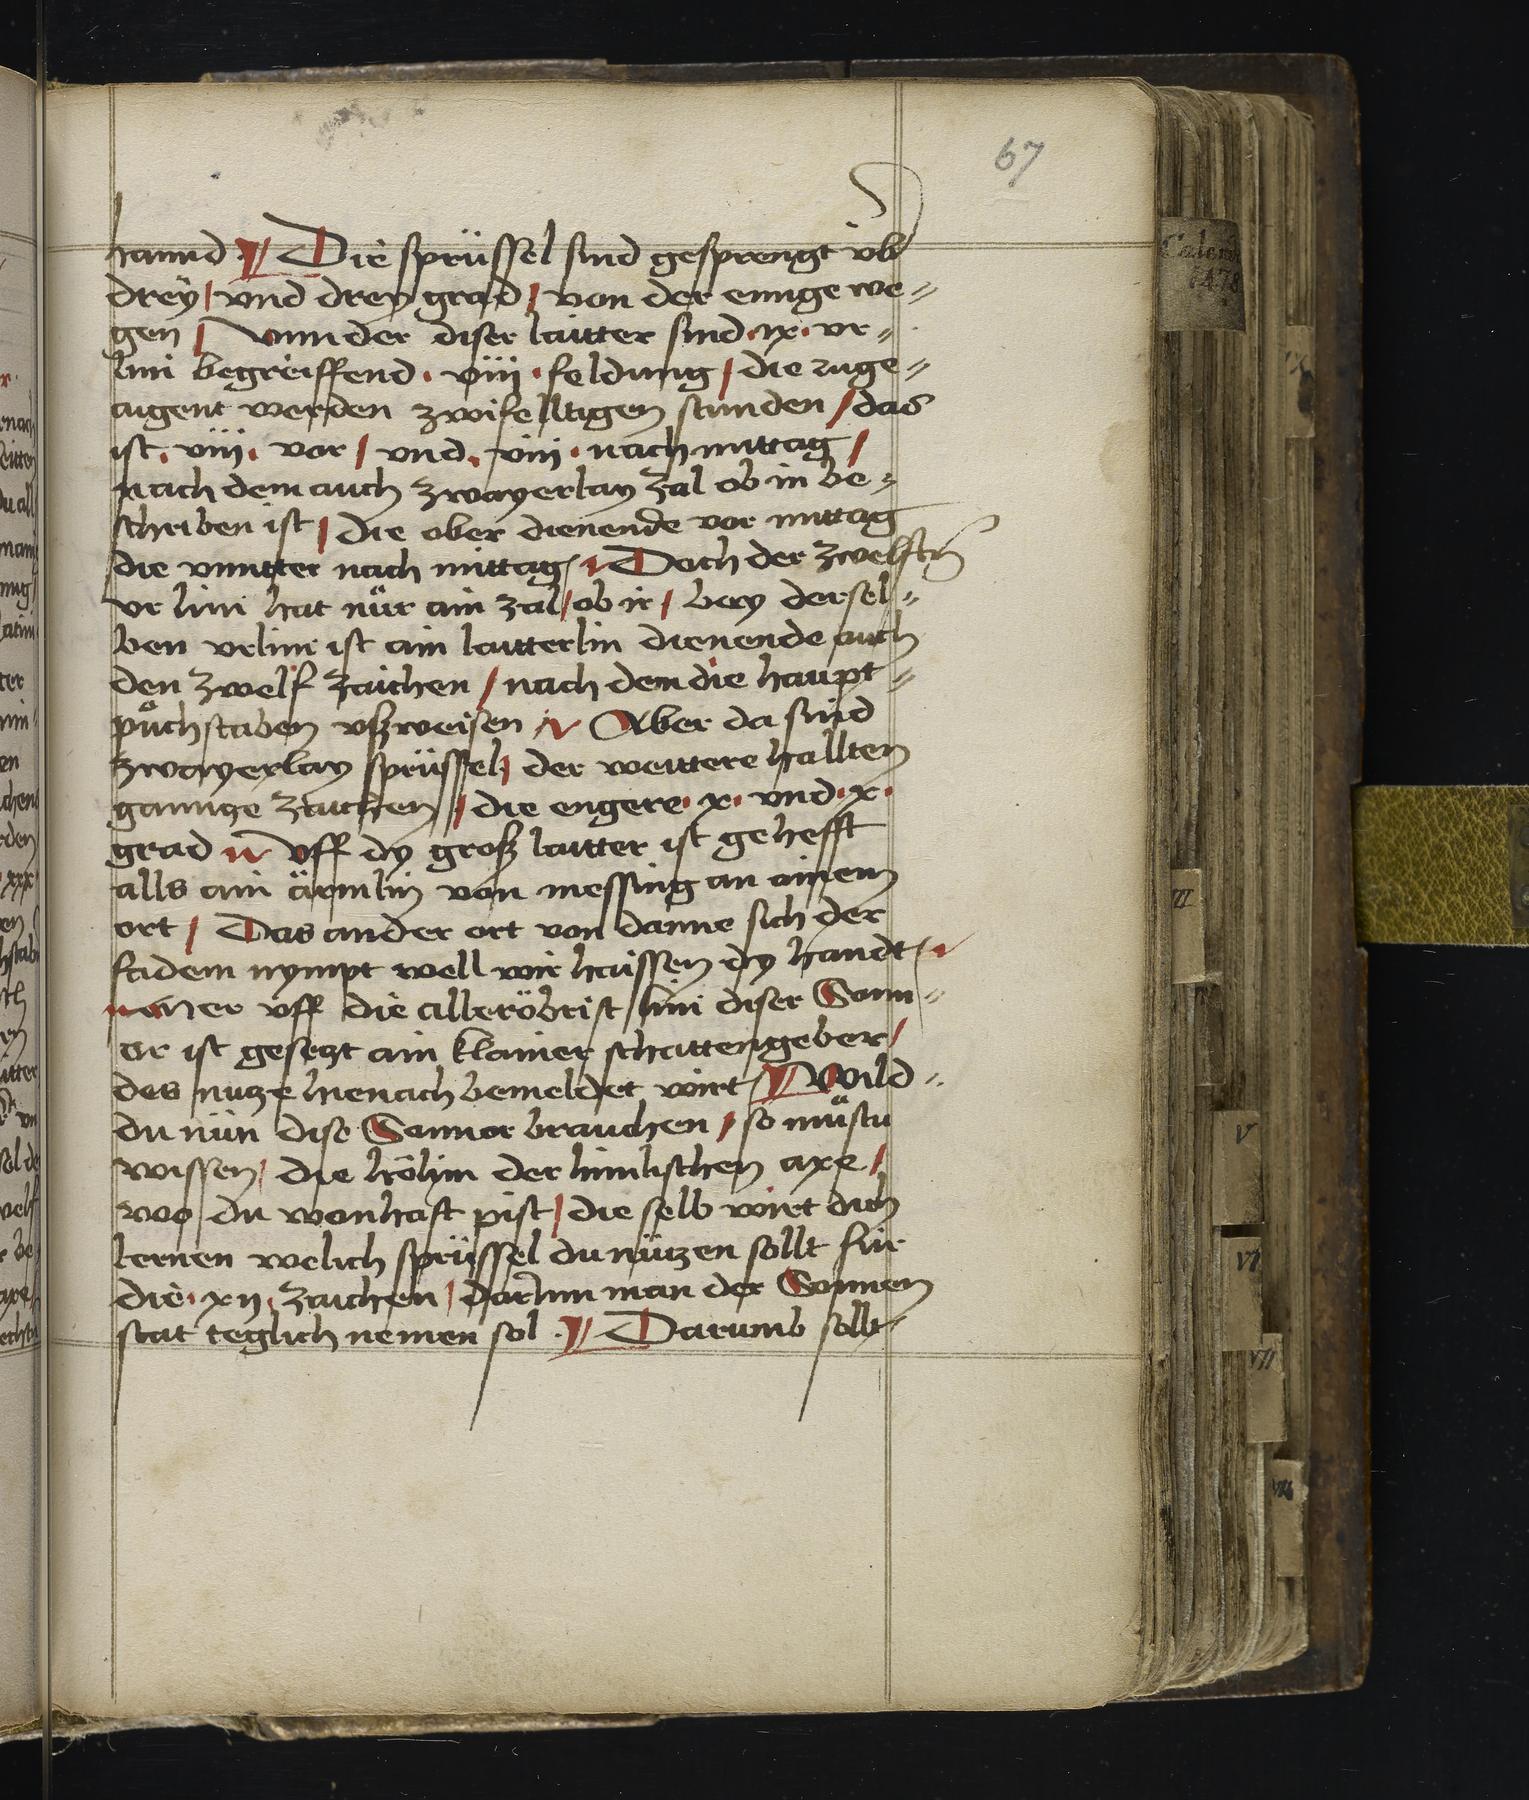 67
hannd Die sprüssel sind gesprengt üb
drey / vnd drey grad / von der ennge we=
gen / Vnnder diser laitter sind · ix · vr=
lini begreiffend · viii · feldung / die zuge=
aigent werden zwifelltigen stunden / das
ist · viii · vor / vnd · viii · nach mittag /
nach dem auch zwayerlay zal ob in be=
schriben ist / die ober dienende vor mittag
die vnntter nach mittag / Doch der zwelften
vr lini hat nür ain zal / ob ir / bey dersel=
ben vrlini ist ain laitterlin dienende auch
den zwelf zaichen / nach dem die haupt=
půchstaben vßweisen Aber da sind
zwayerlay sprüssel / der weittere hallten
gannze zaichen / die engere · x · vnd · x ·
grad Vff dy groß laitter ist gehefft
alls ain ärmlin von messing an ainem
ort / Das ander ort von danne sich der
fadem nympt well wir haissen dy handt /
Mer vff die alleröbrist lini diser Sonn=
er ist gesetzt ain klainer schattengeber /
des nutze hienach bemeldet wirt / Wild=
du nün dise Sonner brauchen / so můstu
wissen / die höhin der himlischen axe /
wo du wonhaft pist / die selb wirt dich
lernen welich sprüssel du nützen sollt für
die · xij · zaichen / darInn man der Sonnen
stat teglich nemen sol · Darumb sollt
Calend
1478
IX
III
V
VI
VII